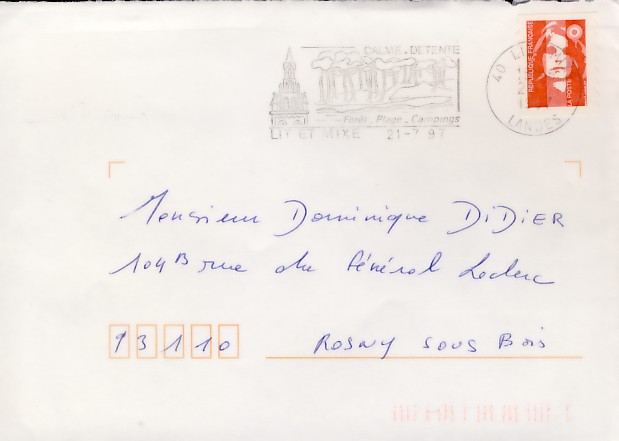 CALME . DETENTE
Forêt . Plage . Campings
LIT ET MIXE 21-7 97
40 LI
LANDES
REPUBLIQUE FRANÇAISE
LA POSTE
Monsieur Dominique DiDiER
104 B rue du Général Leclerc
93110 ROSNY SOUS BOiS